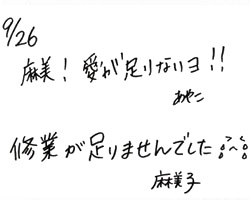 9/26
麻美！愛が足りないヨ!!
あやこ
修業が足りませんでした
麻美子